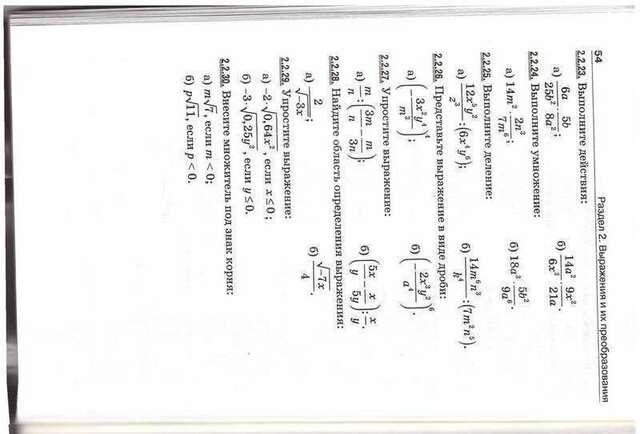 54 Раздел 2. Выражения и их преобразования
2.2.23. Выполните действия:
а) 6a/25b² · 5b/8a²; б) 14a²/6x³ · 9x²/21a.
2.2.24. Выполните умножение:
а) 14m² · 2n³/7m⁶; б) 18a³ · 5b²/9a⁶.
2.2.25. Выполните деление:
а) 12x⁵y²/z³ : (6x⁴y⁶); б) 14m⁶n³/k⁴ : (7m²n⁵).
2.2.26. Представьте выражение в виде дроби:
а) (−3x²y⁴/m³)⁴; б) (−2x³y²/a⁴)⁶.
2.2.27. Упростите выражение:
а) m/n : (3m/n − m/3n); б) (5x/y − x/5y) : x/y.
2.2.28. Найдите область определения выражения:
а) 2/√−3x; б) √−7x/4.
2.2.29. Упростите выражение:
а) −2·√0,64x², если x ≤ 0;
б) −3·√0,25y², если y ≤ 0.
2.2.30. Внесите множитель под знак корня:
а) m√7, если m < 0;
б) p√11, если p < 0.